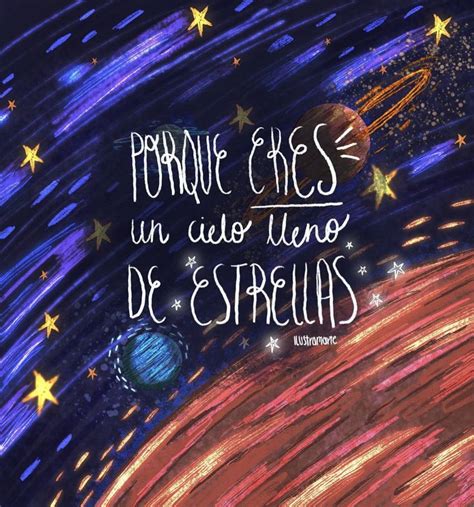 PORQUE ERES
un cielo lleno
DE ESTRELLAS
ilustramarte